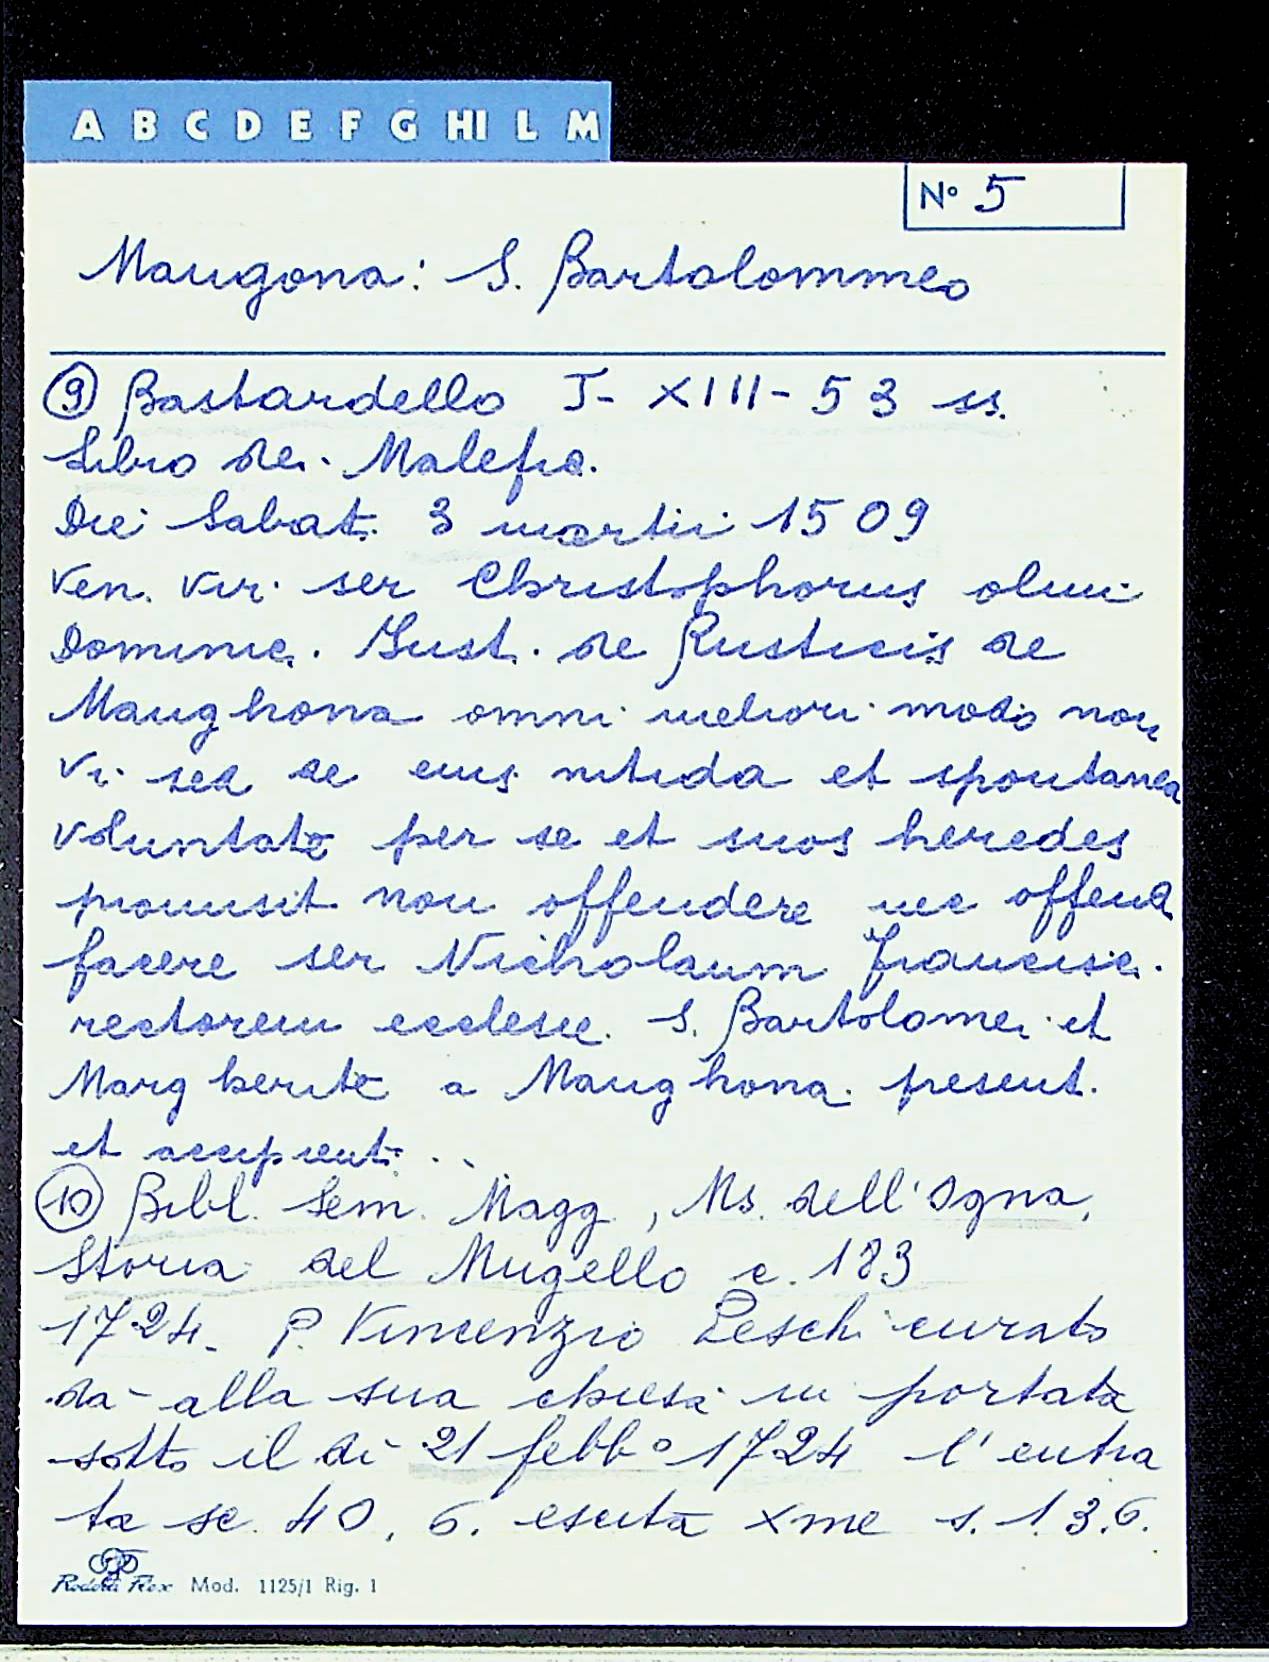 A B C D E F G HI L M
N° 5
Mangona: S. Bartolommeo
⑨ Bastardello I - XIII - 53 ss.
Libro dei Malefic.
Die Sabat. 3 martii 1509
Ven. vir ser Christophorus olim
Dominic. Just. de Rusticis de
Manghona omni meliori modo non
vi sed de eius nitida et spontanea
voluntate per se et suos heredes
promisit non offendere nec offend
facere ser Nicholaum Francisc.
rectorem ecclesie S. Bartolomei et
Margherite a Manghona present.
et accipient. ..
⑩ Bibl. Sem. Magg., Ms. dell'Ogna,
Storia del Mugello c. 183
1724. P. Vincenzio Peschi curato
dà alla sua chiesa in portata
sotto il dì 21 febb° 1724 l'entra
ta sc. 40, 6. escita Xme s. 1. 3. 6.
Mod. 1125/1 Rig. 1